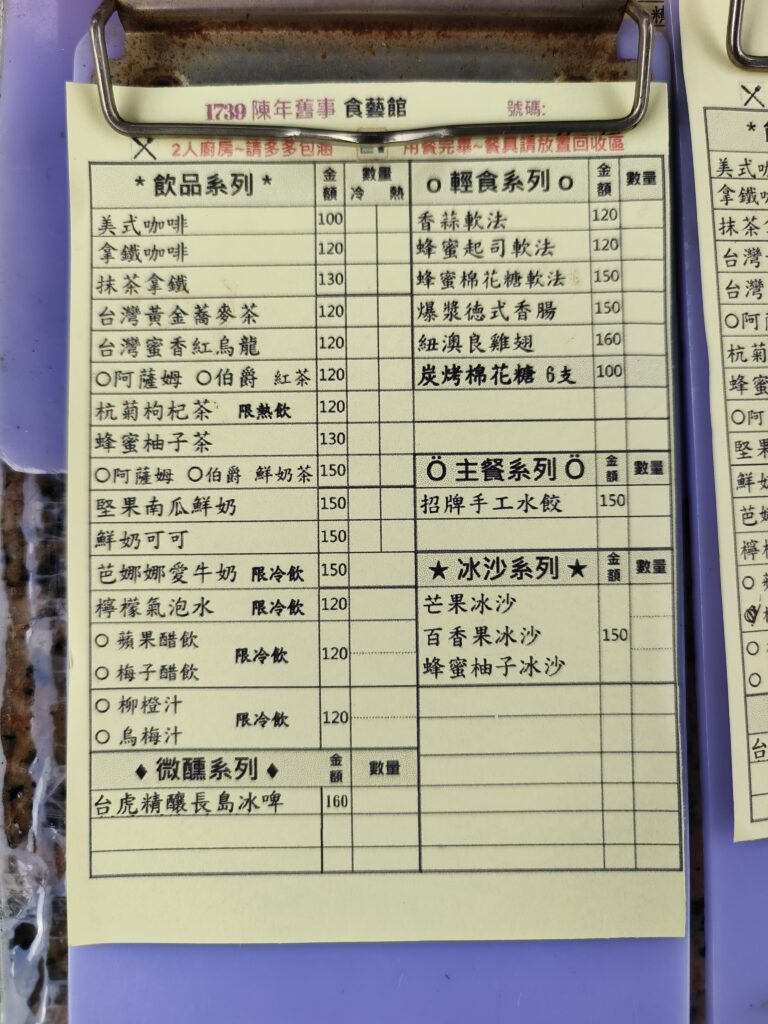 1739 陳年舊事 食藝館 號碼:
2人廚房~請多多包涵 用餐完畢~餐具請放置回收區
* 飲品系列 * 金額 數量 冷 熱
美式咖啡 100
拿鐵咖啡 120
抹茶拿鐵 130
台灣黃金蕎麥茶 120
台灣蜜香紅烏龍 120
○阿薩姆 ○伯爵 紅茶 120
杭菊枸杞茶 限熱飲 120
蜂蜜柚子茶 130
○阿薩姆 ○伯爵 鮮奶茶 150
堅果南瓜鮮奶 150
鮮奶可可 150
芭娜娜愛牛奶 限冷飲 150
檸檬氣泡水 限冷飲 120
○ 蘋果醋飲
○ 梅子醋飲 限冷飲 120
○ 柳橙汁
○ 烏梅汁 限冷飲 120
♦ 微醺系列 ♦ 金額 數量
台虎精釀長島冰啤 160
o 輕食系列 o 金額 數量
香蒜軟法 120
蜂蜜起司軟法 120
蜂蜜棉花糖軟法 150
爆漿德式香腸 150
紐澳良雞翅 160
炭烤棉花糖 6支 100
Ö 主餐系列 Ö 金額 數量
招牌手工水餃 150
★ 冰沙系列 ★ 金額 數量
芒果冰沙
百香果冰沙 150
蜂蜜柚子冰沙